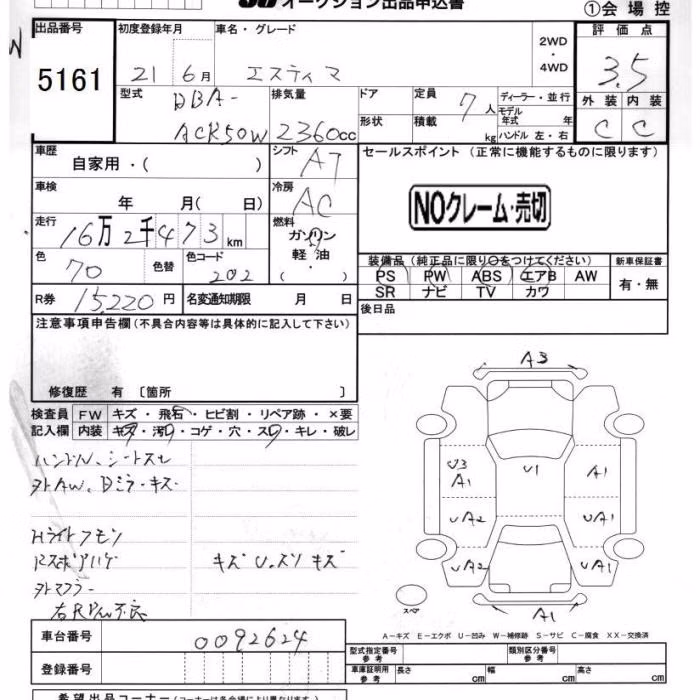 オークション出品申込書 ①会場控
出品番号 初度登録年月 車名・グレード 2WD・4WD 評価点
5161 21 6月 エスティマ 3.5
型式 DBA-ACR50W 排気量 2360cc ドア 形状 定員 7人 積載 kg ディーラー・並行 モデル年式 年 ハンドル 左・右 外装 内装 C C
車歴 自家用・( ) シフト AT セールスポイント (正常に機能するものに限ります)
車検 年 月( 日) 冷房 AC NOクレーム・売切
走行 16万2千473km 燃料 ガソリン 軽油 ( ・ )
色 70 色替 色コード 202 装備品 (純正品に限り○をつけてください) 新車保証書
PS PW ABS エアB AW 有・無
SR ナビ TV カワ
R券 15,220円 名変通知期限 月 日 後日品
注意事項申告欄(不具合内容等は具体的に記入して下さい)
修復歴 有 〔箇所 〕
検査員 FW キズ・飛石・ヒビ割・リペア跡・×要
記入欄 内装 キズ・汚れ・コゲ・穴・スレ・キレ・破レ
A3
ハンドル、シートスレ
外AW、Dミラーキズ
U3 A1 U1 A1
UA2 UA1
Hライトクモリ
キズ U.スリキズ
UA2 UA1
外マフラー
右RPW不良
スペア A1
A-キズ E-エクボ U-凹み W-補修跡 S-サビ C-腐食 XX-交換済
車台番号 0092624
型式指定番号 参考 類別区分番号 参考
登録番号 車庫証明用 参考 長さ cm 幅 cm 高さ cm
希望出品コーナー